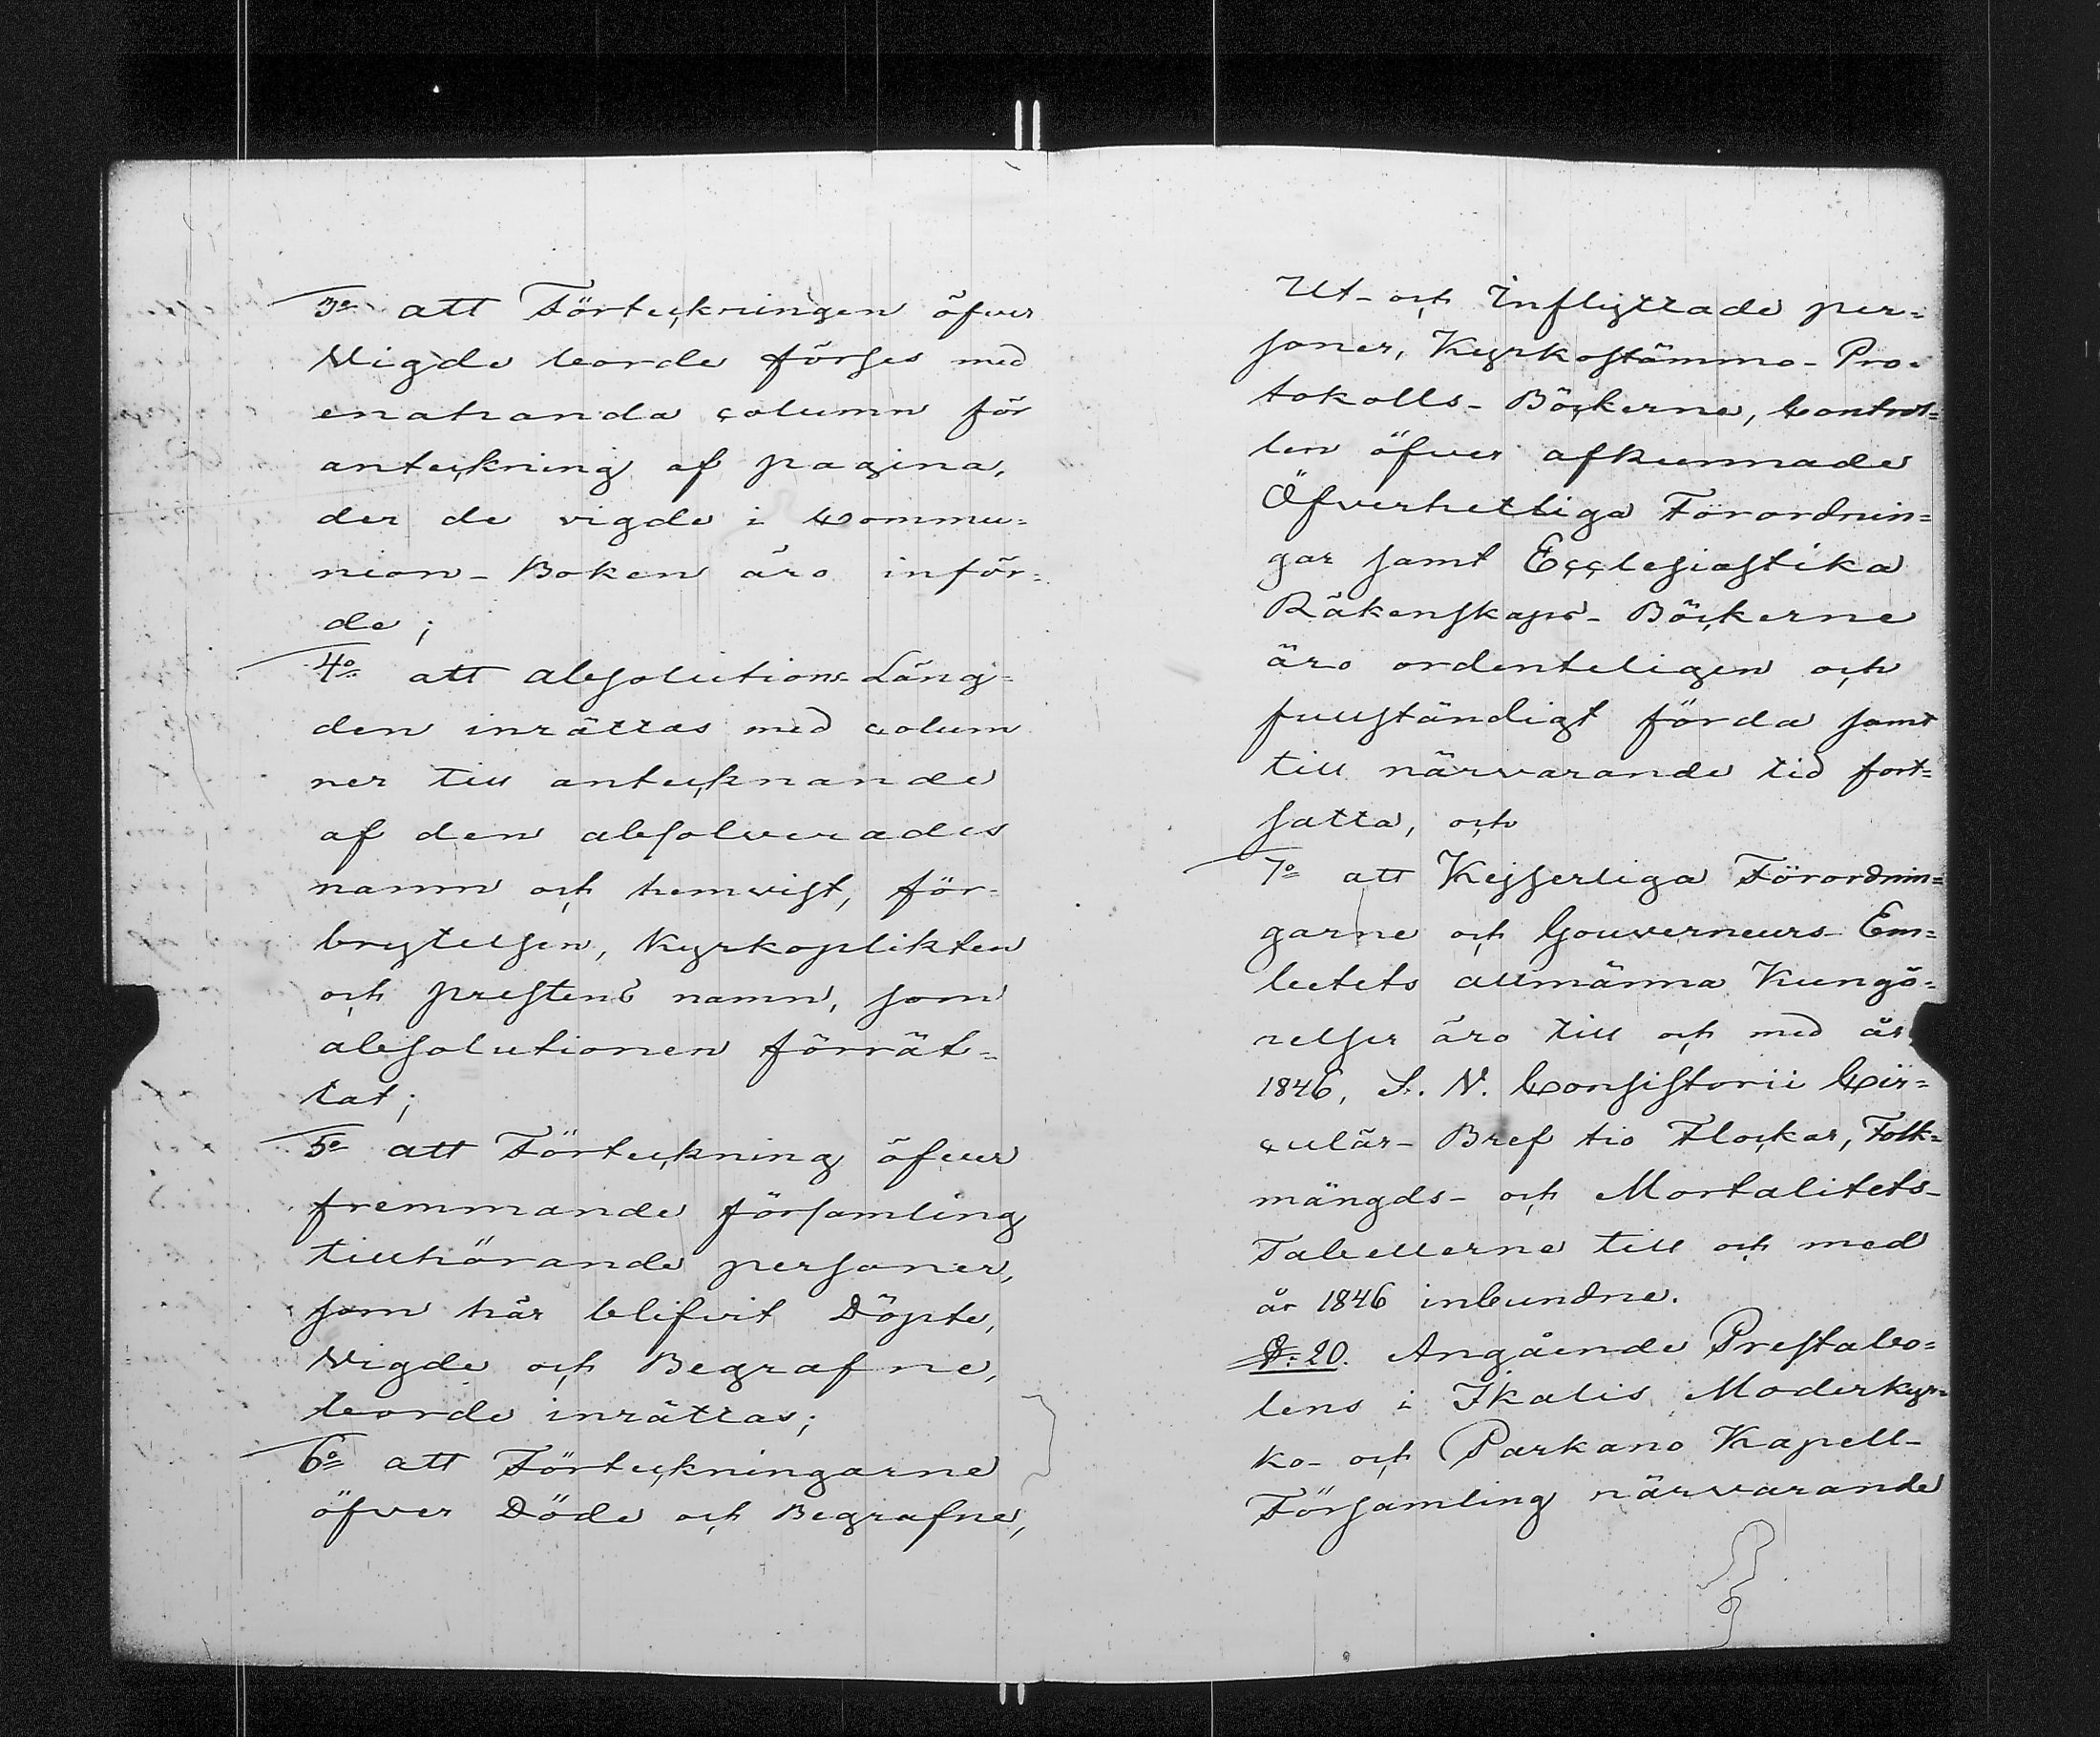 3o att Förteckningen öfver
Vigde borde förses med
enahanda column för
anteckning af pagina,
der de vigde i Commu=
nion-Boken äro inför=
de;
4o att absolutions-Läng=
den inrättas med colum
ner till antecknande
af den absolverades
namn och hemvist, för=
brytelsen, Kyrkoplikten
och prestens namn, som
absolutionen förrät=
tat;
5o att Förteckning öfver
fremmande församling
tillhörande personer,
som här blifvit Döpte,
Vigde och Begrafne,
borde inrättas;
6o att Förteckningarne
öfver Döde och Begrafne,
Ut- och Inflyttade per=
soner, Kyrkostämmo-Pro=
tokolls-Böckerne, Control=
len öfver afkunnade
Öfverhetliga Förordnin=
gar samt Ecclesiastika
Räkenskaps-Böckerne
äro ordenteligen och
fullständigt förda samt
till närvarande tid fort=
satta, och
7o att Kejserliga Förordnin=
garne och Gouverneurs-Em=
betets allmänna Kungö=
relser äro till och med år
1846, S. V. Consistorii Cir=
culär-Bref tio Flockar, Folk=
mängds- och Mortalitets-
Tabellerne till och med
år 1846 inbundne.
§: 20. Angående Prestabo=
lens i Ikalis Moderkyr=
ko- och Parkano Kapell-
Församling närvarande